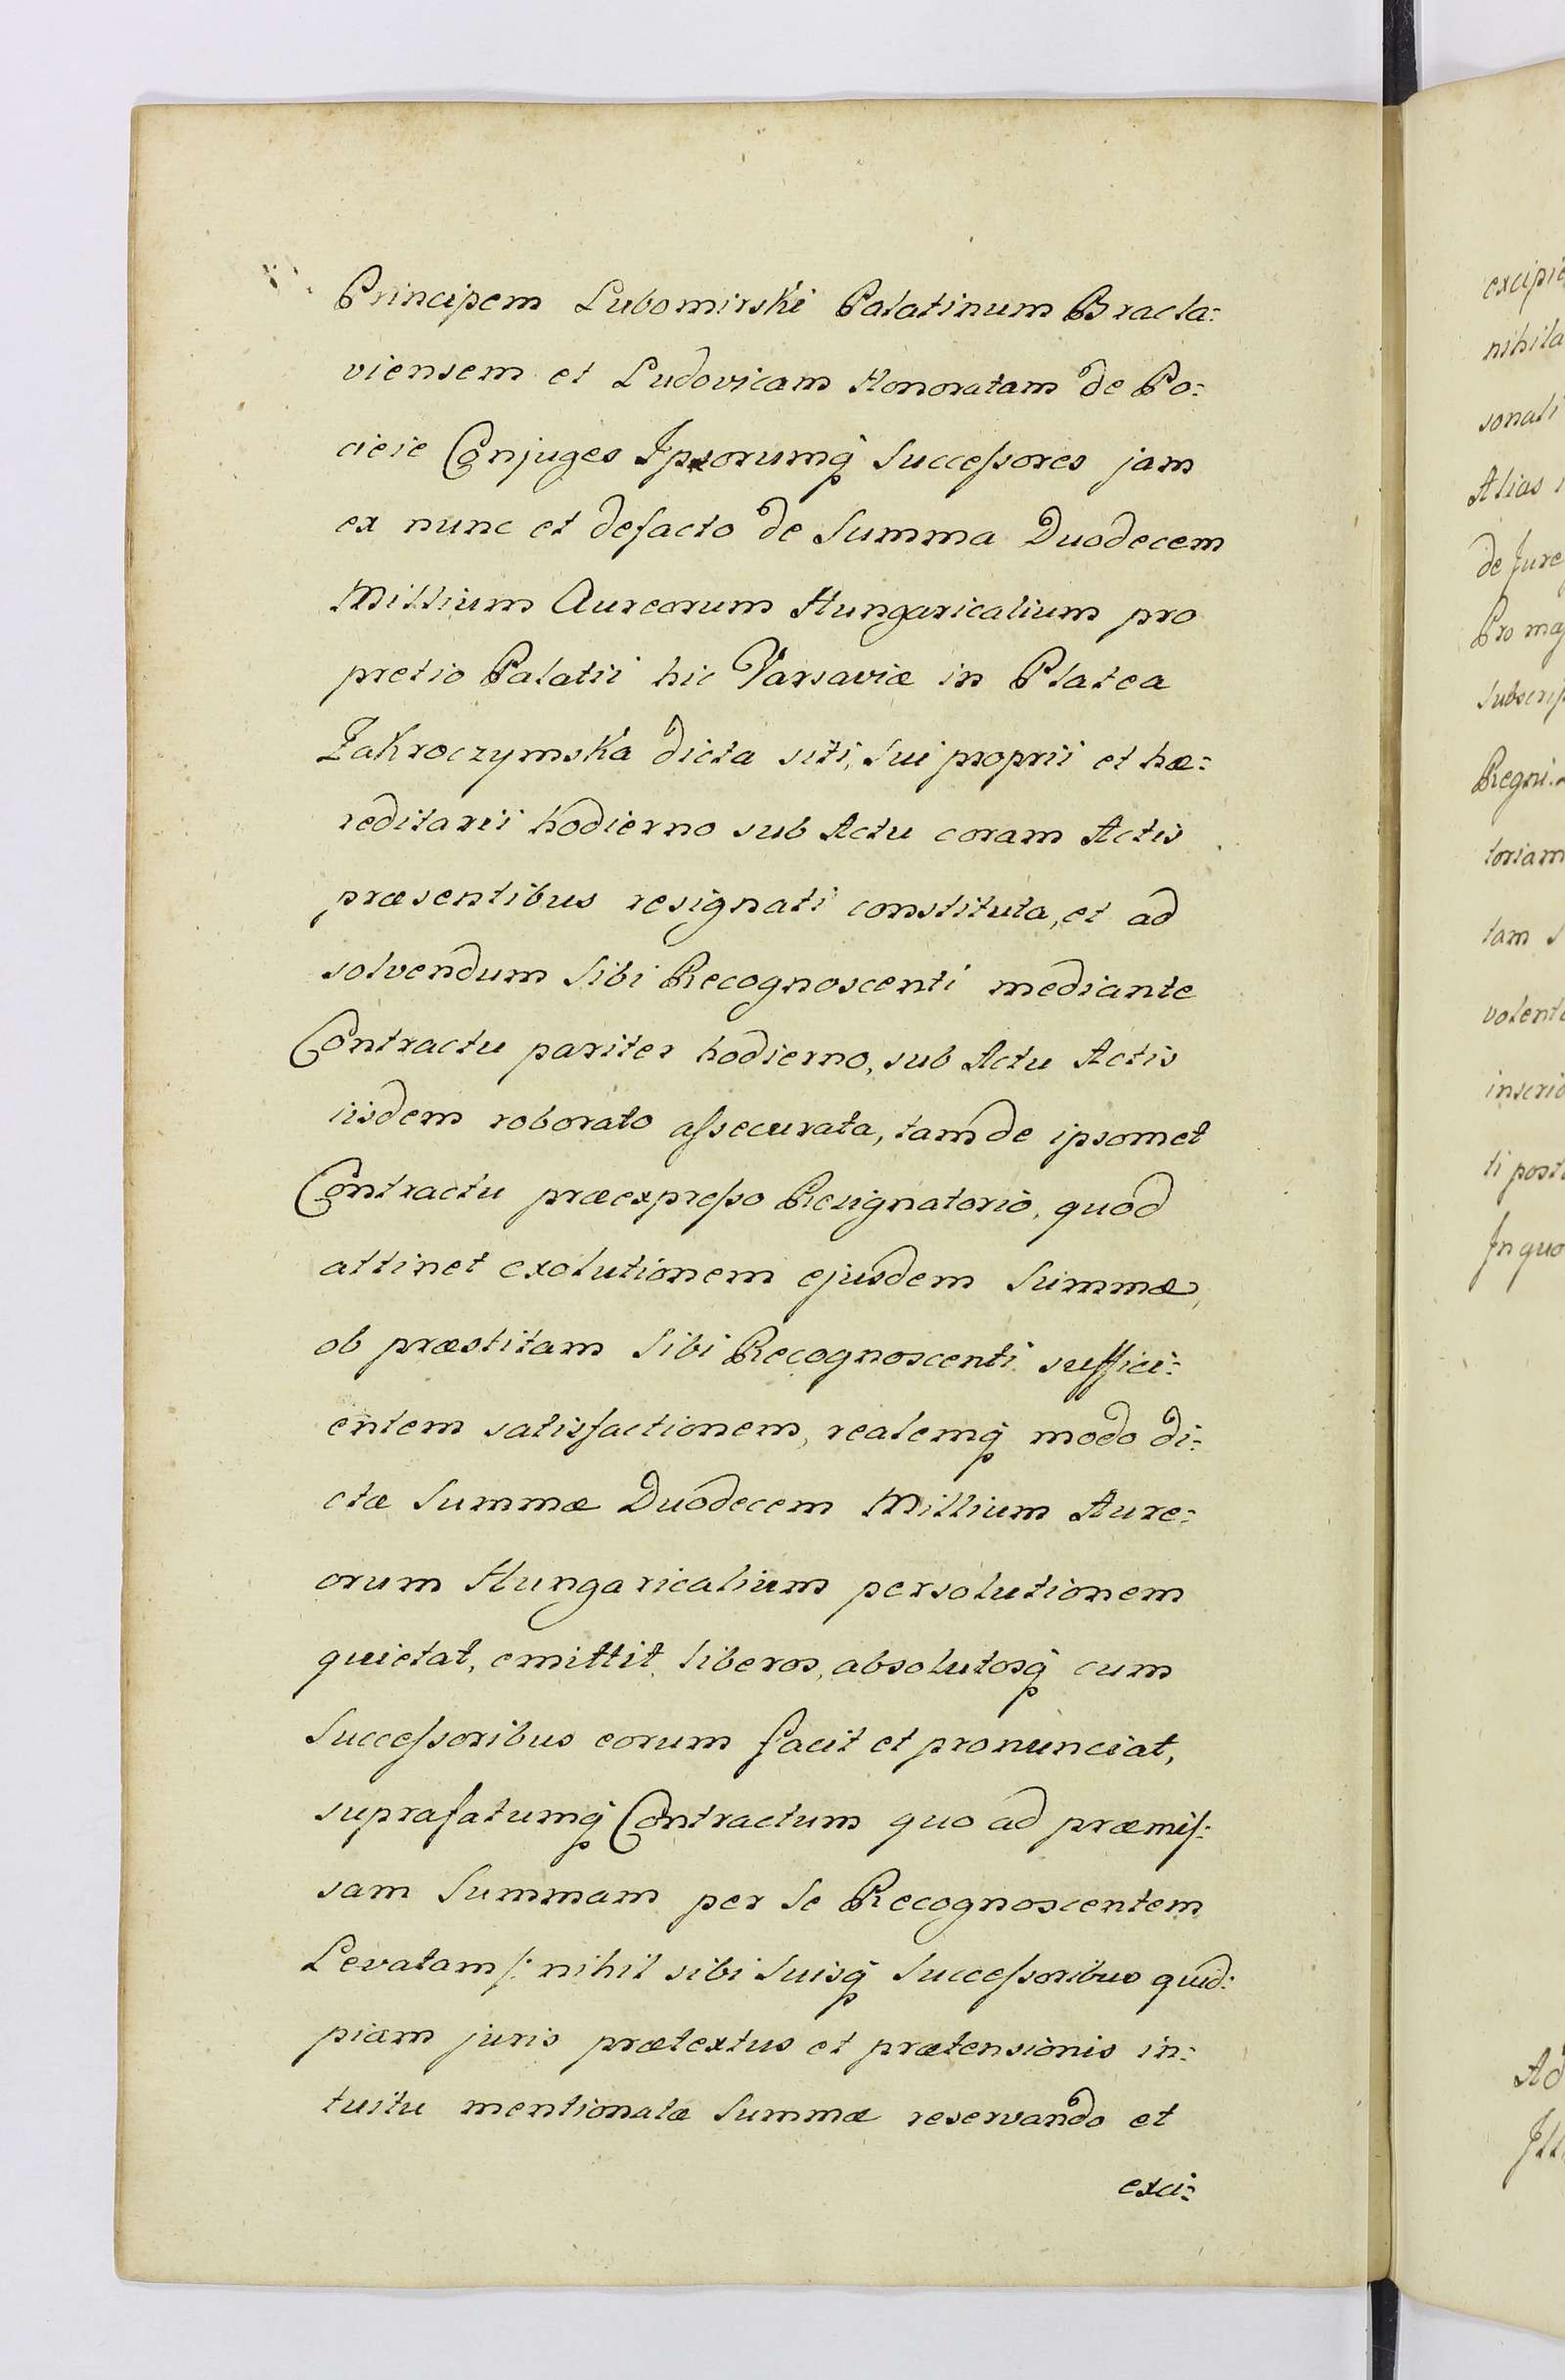 Principem Lubomirski Palatinum Bracla:
viensem et Ludovicam Honoratam de Po:
cieie Conjuges Ipsorumq̃ Succeſsores jam
ex nunc et defacto de Summa Duodecem
Millium Aureorum Hungaricalium pro
pretio Palatii hic Varsaviæ in Platea
Zakroczymska dicta siti, Sui proprii et hæ:
reditarii hodierno sub Actu coram Actis
præsentibus resignati constituta, et ad
solvendum Sibi Recognoscenti mediante
Contractu pariter hodierno, sub Actu Actis
iisdem roborato aſsecurata, tam de ipsomet
Contractu præexpreſso Resignatorio, quod
attinet exolutionem ejusdem Summæ,
ob præstitam Sibi Recognoscenti suffici:
entem satisfactionem, realemq̃ modo di:
ctæ Summæ Duodecem Millium Aure:
orum Hungaricalium persolutionem
quietat, emittit, liberos, absolutosq̃ cum
Succeſsoribus eorum facit et pronunciat,
suprafatumq̃ Contractum quo ad præmiſ:
sam Summam per Se Recognoscentem
Levatam /: nihil sibi Suisq̃ Succeſsoribus quid:
piam juris prætextus et prætensionis in:
tuitu mentionatæ Summæ reservando et
exci:
excipie
nihila
sonali
Alias
de Jure
Pro maj
Subscrip
Regni
toriam
tam S
volent
inscrib
ti post
In quo
Ad